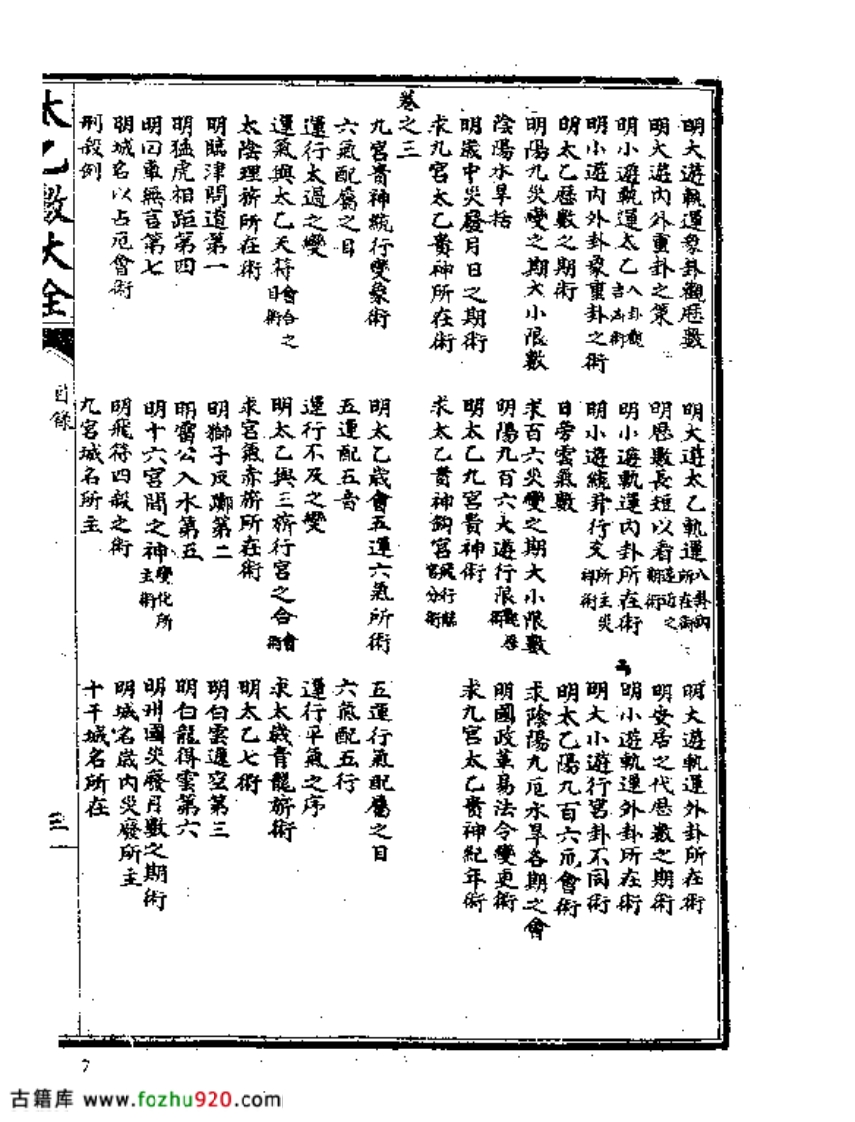 明大遊軌運象卦觀厯數
明大遊太乙軌運八卦內所在術
明大遊軌運外卦所在術
明大遊內外重卦之策
明厯數長短以看遠近之期術
明安居之代厯數之期術
明小遊軌運太乙八卦觀吉凶術
明小遊軌運內卦所在術
明小遊軌運外卦所在術
明小遊內外卦象重卦之術
明小遊統卦行爻所主災祥術
明大小遊行宮卦不同術
明太乙厯數之期術
日旁雲氣數
明太乙陽九百六厄會術
明陽九災變之期大小限數
求百六災變之期大小限數
求陰陽九厄水旱各期之會
陰陽水旱括
明陽九百六大遊行限
明國政革易法令變更術
明歲中災發月日之期術
明太乙九宮貴神術
求九宮太乙貴神紀年術
求九宮太乙貴神所在術
求太乙貴神鈎宮
卷之三
九宮貴神統行變象術
明太乙歲會五運六氣所術
五運行氣配屬之目
六氣配屬之目
五運配五音
六氣配五行
運行太過之變
運行不及之變
運行平氣之序
運氣與太乙天符會合之目術
明太乙與三旂行宮之合會術
求太歲青龍旂術
太陰理旂所在術
求宮氣赤旂所在術
明太乙七術
明臨津問道第一
明獅子反躑第二
明白雲遲空第三
明猛虎相距第四
明雷公入水第五
明白龍得雲第六
明回車無言第七
明十六宮間之神變化所主術
明州國災發月數之期術
明城名以占厄會術
明飛符四殺之術
明城名歲內災發所主
刑殺例
九宮城名所主
十干城名所在
太乙數大全
目錄
三
7
古籍库 www.fozhu920.com